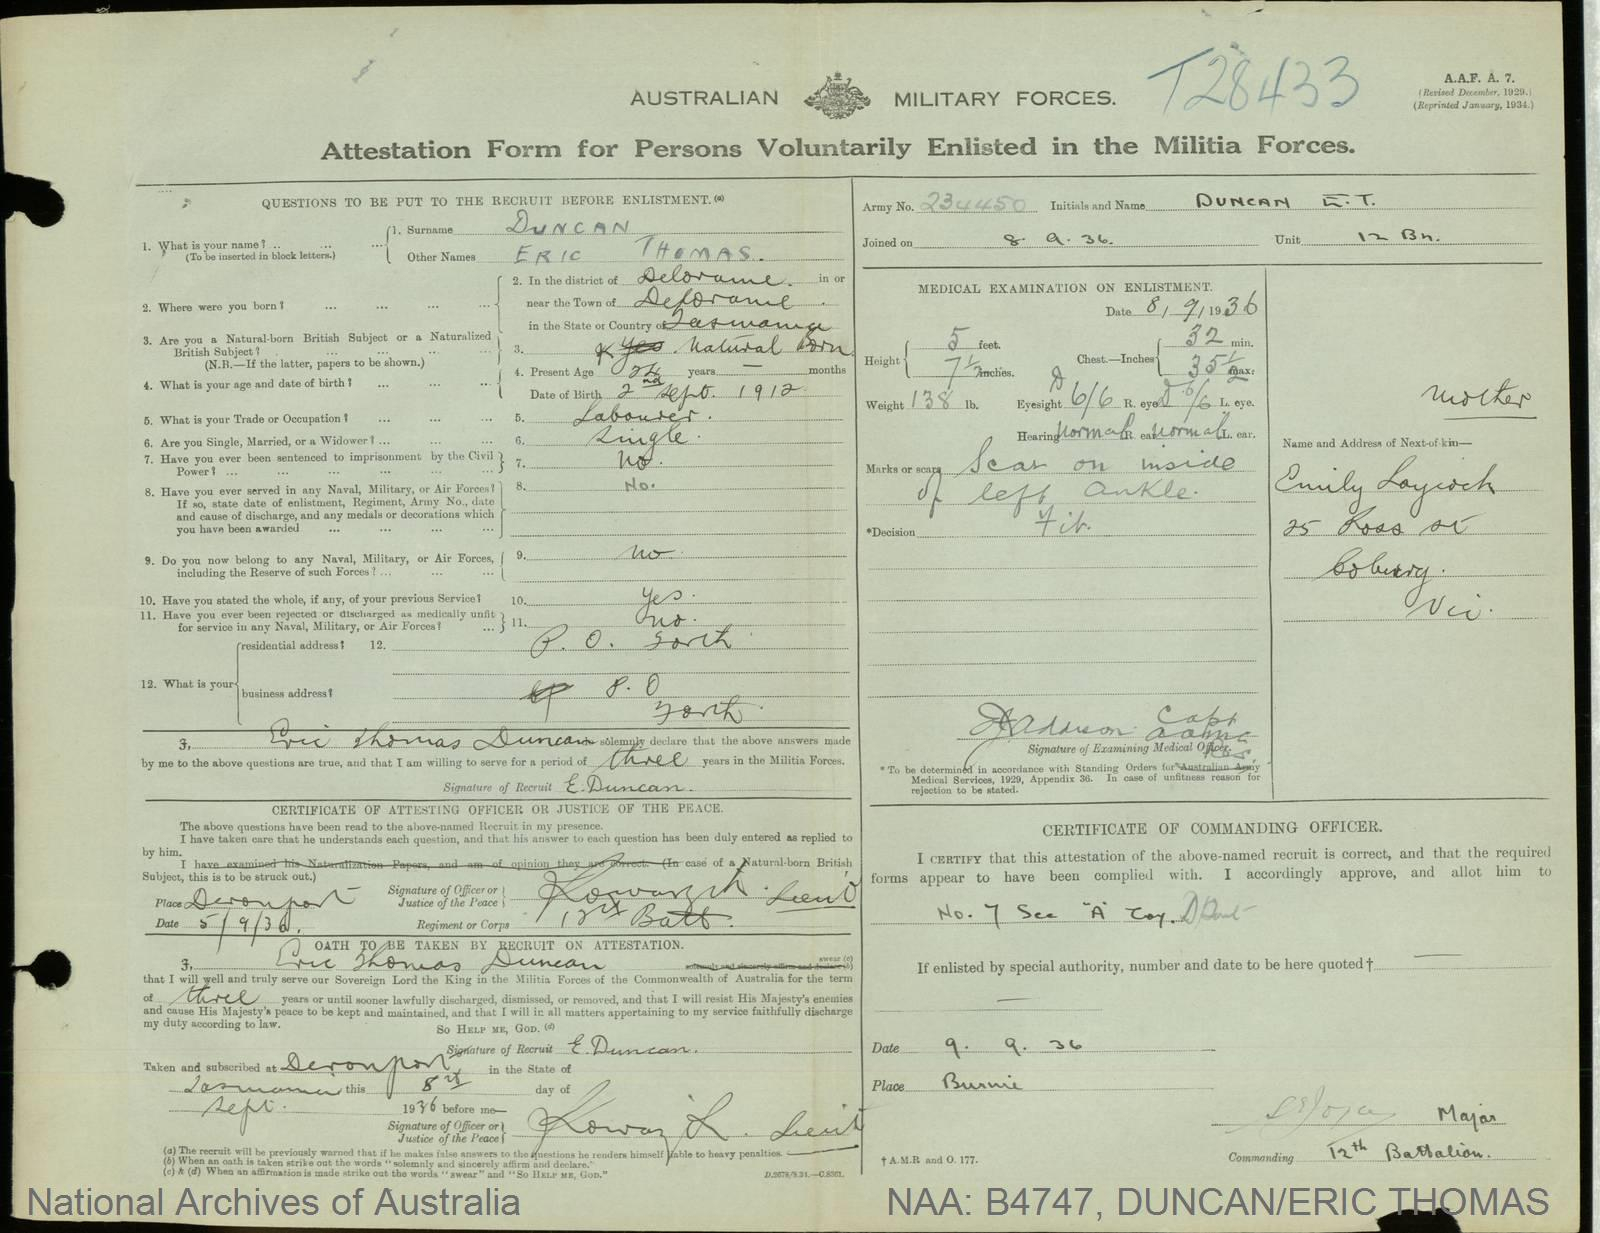 T28433
A.A.F. A. 7.
(Revised December, 1929.)
(Reprinted January, 1934.)
AUSTRALIAN MILITARY FORCES.
Attestation Form for Persons Voluntarily Enlisted in the Militia Forces.
QUESTIONS TO BE PUT TO THE RECRUIT BEFORE ENLISTMENT.(a)
1. What is your name? .. ... ... 1. Surname DUNCAN
(To be inserted in block letters.) Other Names ERIC THOMAS.
2. Where were you born? ... ... ... 2. In the district of Deloraine. in or
near the Town of Deloraine.
in the State or Country of Tasmania
3. Are you a Natural-born British Subject or a Naturalized
British Subject? ... ... ... ... 3. Yes. Natural Born
(N.B.—If the latter, papers to be shown.)
4. What is your age and date of birth? ... ... ... 4. Present Age 24 years — months
Date of Birth 2nd Sept. 1912
5. What is your Trade or Occupation? ... ... ... 5. Labourer.
6. Are you Single, Married, or a Widower? ... ... ... 6. Single.
7. Have you ever been sentenced to imprisonment by the Civil
Power? ... ... ... ... ... ... 7. No.
8. Have you ever served in any Naval, Military, or Air Forces? 8. No.
If so, state date of enlistment, Regiment, Army No., date
and cause of discharge, and any medals or decorations which
you have been awarded ... ... ... ...
9. Do you now belong to any Naval, Military, or Air Forces, 9. No.
including the Reserve of such Forces? ... ... ...
10. Have you stated the whole, if any, of your previous Service? 10. Yes.
11. Have you ever been rejected or discharged as medically unfit
for service in any Naval, Military, or Air Forces? ... 11. No.
residential address? 12. P. O. Forth
12. What is your
business address? P. O
Forth.
I, Eric Thomas Duncan solemnly declare that the above answers made
by me to the above questions are true, and that I am willing to serve for a period of three years in the Militia Forces.
Signature of Recruit E. Duncan.
CERTIFICATE OF ATTESTING OFFICER OR JUSTICE OF THE PEACE.
The above questions have been read to the above-named Recruit in my presence.
I have taken care that he understands each question, and that his answer to each question has been duly entered as replied to
by him.
I have examined his Naturalization Papers, and am of opinion they are correct. (In case of a Natural-born British
Subject, this is to be struck out.)
Place Devonport Signature of Officer or
Justice of the Peace Lieut
Date 5/9/36. Regiment or Corps 12th Batt.
OATH TO BE TAKEN BY RECRUIT ON ATTESTATION.
I, Eric Thomas Duncan swear (c)
solemnly and sincerely affirm and declare (b)
that I will well and truly serve our Sovereign Lord the King in the Militia Forces of the Commonwealth of Australia for the term
of three years or until sooner lawfully discharged, dismissed, or removed, and that I will resist His Majesty's enemies
and cause His Majesty's peace to be kept and maintained, and that I will in all matters appertaining to my service faithfully discharge
my duty according to law.
SO HELP ME, GOD. (d)
Signature of Recruit E. Duncan.
Taken and subscribed at Devonport in the State of
Tasmania this 8th day of
Sept. 1936 before me—
Signature of Officer or
Justice of the Peace Lieut
(a) The recruit will be previously warned that if he makes false answers to the questions he renders himself liable to heavy penalties.
(b) When an oath is taken strike out the words "solemnly and sincerely affirm and declare."
(c) & (d) When an affirmation is made strike out the words "swear" and "So HELP ME, GOD."
D.2678/9.34.—C.8361.
Army No. 234450 Initials and Name DUNCAN E.T.
Joined on 8. 9. 36. Unit 12 Bn.
MEDICAL EXAMINATION ON ENLISTMENT.
Date 8/9/1936
Height 5 feet. 7½ inches. Chest—Inches 32 min. 35½ max.
Weight 138 lb. Eyesight D 6/6 R. eye D 6/6 L. eye.
Hearing Normal R. ear Normal L. ear.
Marks or scars Scar on inside
of left ankle.
*Decision Fit.
Capt
Signature of Examining Medical Officer.
* To be determined in accordance with Standing Orders for Australian Army
Medical Services, 1929, Appendix 36. In case of unfitness reason for
rejection to be stated.
Mother
Name and Address of Next-of-kin—
Emily Laycock
25 Ross St
Coburg.
Vic.
CERTIFICATE OF COMMANDING OFFICER.
I CERTIFY that this attestation of the above-named recruit is correct, and that the required
forms appear to have been complied with. I accordingly approve, and allot him to
No. 7 Sec "A" Coy.
If enlisted by special authority, number and date to be here quoted † —
—
Date 9. 9. 36
Place Burnie
Major
Commanding 12th Battalion.
† A.M.R and O. 177.
National Archives of Australia
NAA: B4747, DUNCAN/ERIC THOMAS